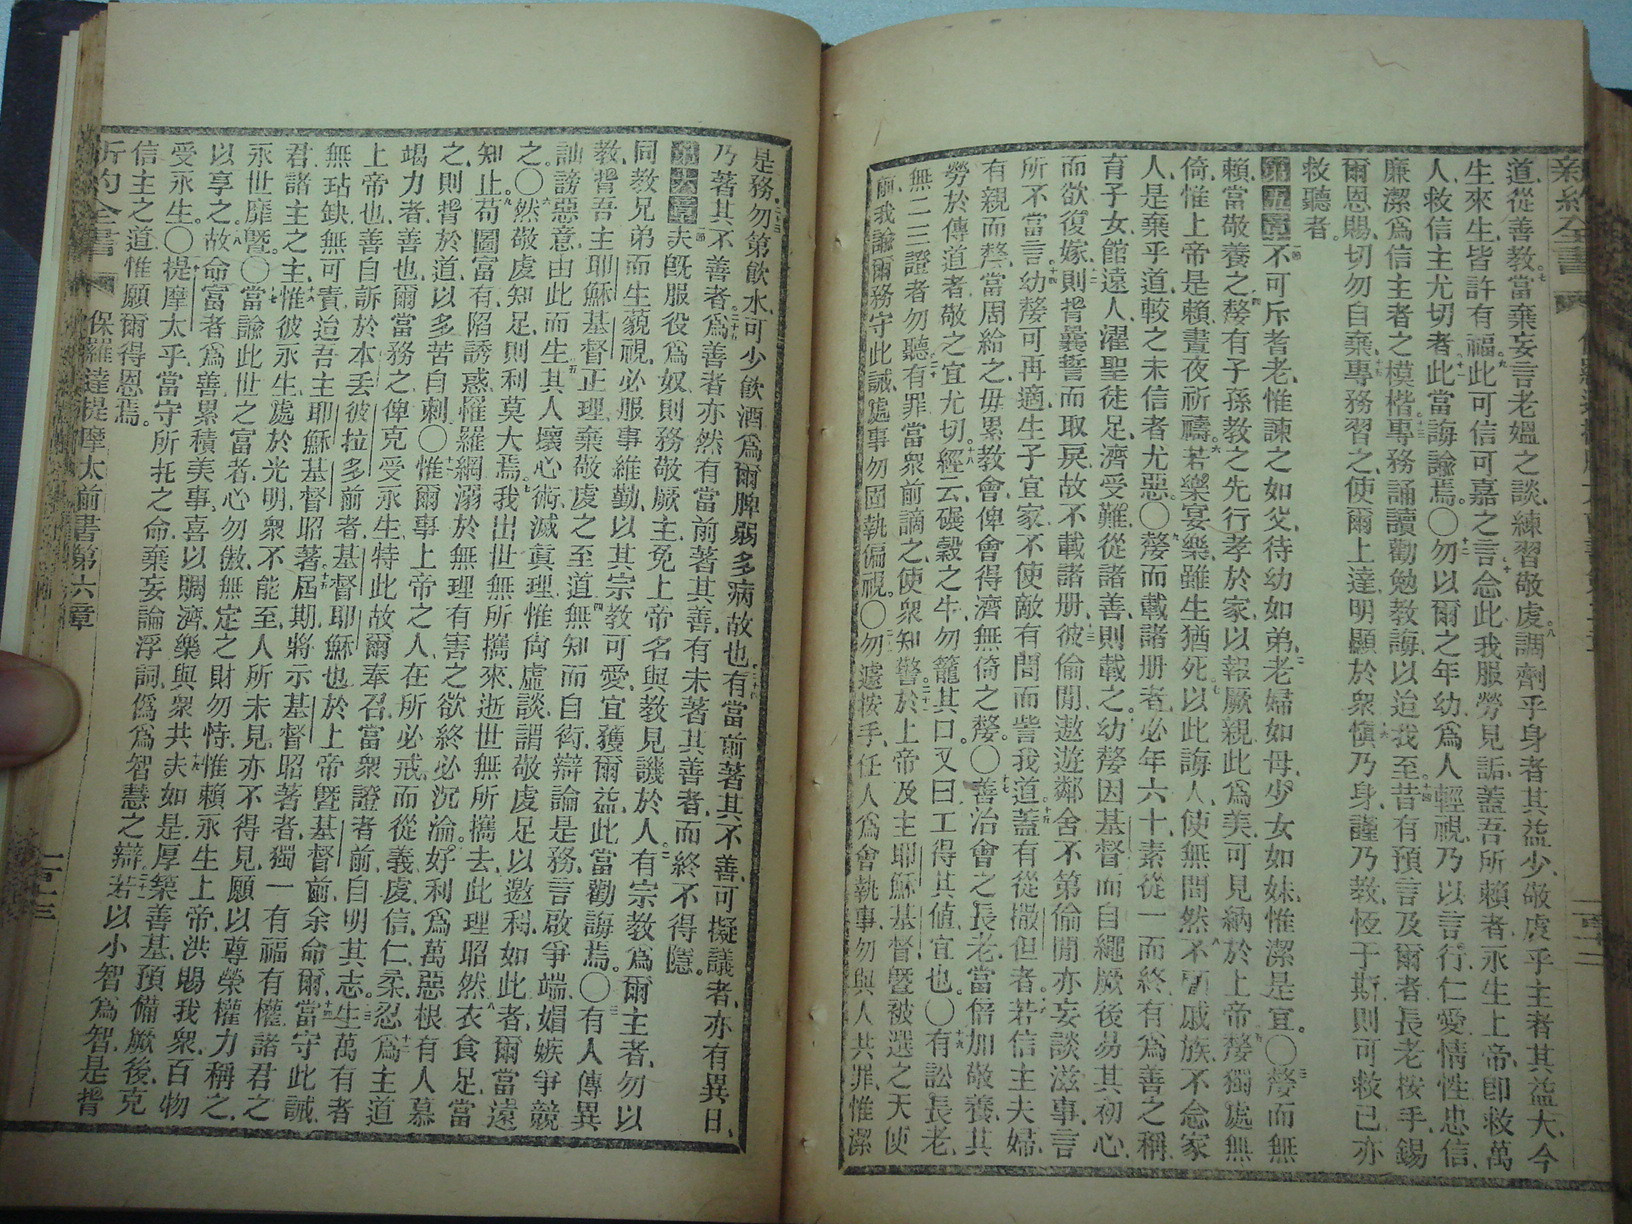 新約全書
道、從善教、當棄妄言老媼之談、練習敬虔、調劑乎身者其益少、敬虔乎主者其益大、今
生來生、皆許有福、此可信可嘉之言、念此我服勞見詬、蓋吾所賴者、永生上帝、卽救萬
人、救信主尤切者、此當誨諭焉。〇勿以爾之年幼、爲人輕視、乃以言行仁愛情性忠信
廉潔、爲信主者之模楷、專務誦讀、勸勉教誨、以迨我至、昔有預言及爾者、長老按手、錫
爾恩賜、切勿自棄、專務習之、使爾上達、明顯於衆、愼乃身、謹乃教、恆于斯、則可救已、亦
救聽者。
第五章 不可斥耆老、惟諫之如父、待幼如弟、老婦如母、少女如妹、惟潔是宜。〇嫠而無
賴、當敬養之、嫠有子孫、教之先行孝於家、以報厥親、此爲美、可見納於上帝、嫠獨處無
倚、惟上帝是賴、晝夜祈禱、若樂宴樂、雖生猶死、以此誨人、使無間然、不顧戚族、不念家
人、是棄乎道、較之未信者尤惡、〇嫠而載諸册者、必年六十、素從一而終、有爲善之稱、
育子女、館遠人、濯聖徒足、濟受難、從諸善、則載之。幼嫠因基督而自繩、厥後易其初心、
而欲復嫁、則背曩誓而取戾、故不載諸册、彼偷閒遨遊鄰舍、不第偷閒、亦妄談滋事、言
所不當言、幼嫠可再適、生子宜家、不使敵有間而訾我道、蓋有從撒但者、若信主夫婦、
有親而嫠、當周給之、毋累教會、俾會得濟無倚之嫠。〇善治會之長老、當倍加敬養、其
勞於傳道者、敬之宜尤切、經云、碾穀之牛、勿籠其口。又曰、工得其値宜也。〇有訟長老、
無二三證者勿聽、有罪當衆前謫之、使衆知警、於上帝及主耶穌基督、曁被選之天使
前、我諭爾務守此誡、處事勿固執偏視。〇勿遽按手任人爲會執事、勿與人共罪、惟潔
是務、勿第飲水、可少飲酒、爲爾脾弱多病故也、有當前著其不善、可擬議者、亦有異日、
乃著其不善者、爲善者亦然、有當前著其善、有未著其善者、而終不得隱。
第六章 夫旣服役爲奴、則務敬厥主、免上帝名與教見譏於人、有宗教爲爾主者、勿以
同教兄弟而生藐視、必服事維勤、以其宗教可愛、宜獲爾益、此當勸誨焉。〇有人傳異
教、背吾主耶穌基督正理、棄敬虔之至道、無知而自衒、辯論是務、言啟爭端、媢嫉爭競、
訕謗惡意、由此而生、其人壞心術、滅眞理、惟尙虛談、謂敬虔足以邀利、如此者、爾當遠
之。〇然敬虔知足、則利莫大焉、我出世無所攜來、逝世無所攜去、此理昭然、衣食足、當
知止、苟圖富有、陷誘惑、罹羅網、溺於無理有害之欲、終必沉淪。好利爲萬惡根、有人慕
之、則背於道、以多苦自刺〇惟爾事上帝之人、在所必戒、而從義虔信仁柔忍、爲主道
竭力者、善也、爾當務之、俾克受永生、特此故爾奉召、當衆證者前、自明其志。生萬有者
上帝也、善自訴於本丟彼拉多前者、基督耶穌也、於上帝曁基督前、余命爾、當守此誡、
無玷缺、無可責、迨吾主耶穌基督昭著、屆期、將示基督昭著者、獨一有福有權、諸君之
君、諸主之主、惟彼永生、處於光明、衆不能至、人所未見、亦不得見、願以尊榮權力稱之、
永世靡曁。〇當諭此世之富者、心勿傲、無定之財勿恃、惟賴永生上帝、洪賜我衆百物
以享之。故命富者爲善、累積美事、喜以賙濟、樂與衆共、夫如是、厚築善基、預備厥後、克
受永生。〇提摩太乎、當守所托之命、棄妄論浮詞、僞爲智慧之辯、若以小智爲智、是背
信主之道、惟願爾得恩焉。
新約全書 保羅達提摩太前書第六章